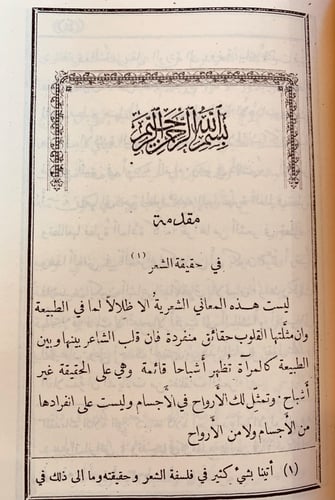 بسم الله الرحمن الرحيم
مقدمة
في حقيقة الشعر (١)
ليست هذه المعاني الشعرية الا ظلالاً لما في الطبيعة
وان مثَّلتها القلوب حقائق منفردة فان قلب الشاعر بينها وبين
الطبيعة كالمرآة تُظهر أشباحا قائمة وهي على الحقيقة غير
أشباح، وتمثّل لك الأرواح في الأجسام وليست على انفرادها
من الأجسام ولا من الأرواح
(١) أتينا بشيءٍ كثير في فلسفة الشعر وحقيقته وما الى ذلك في